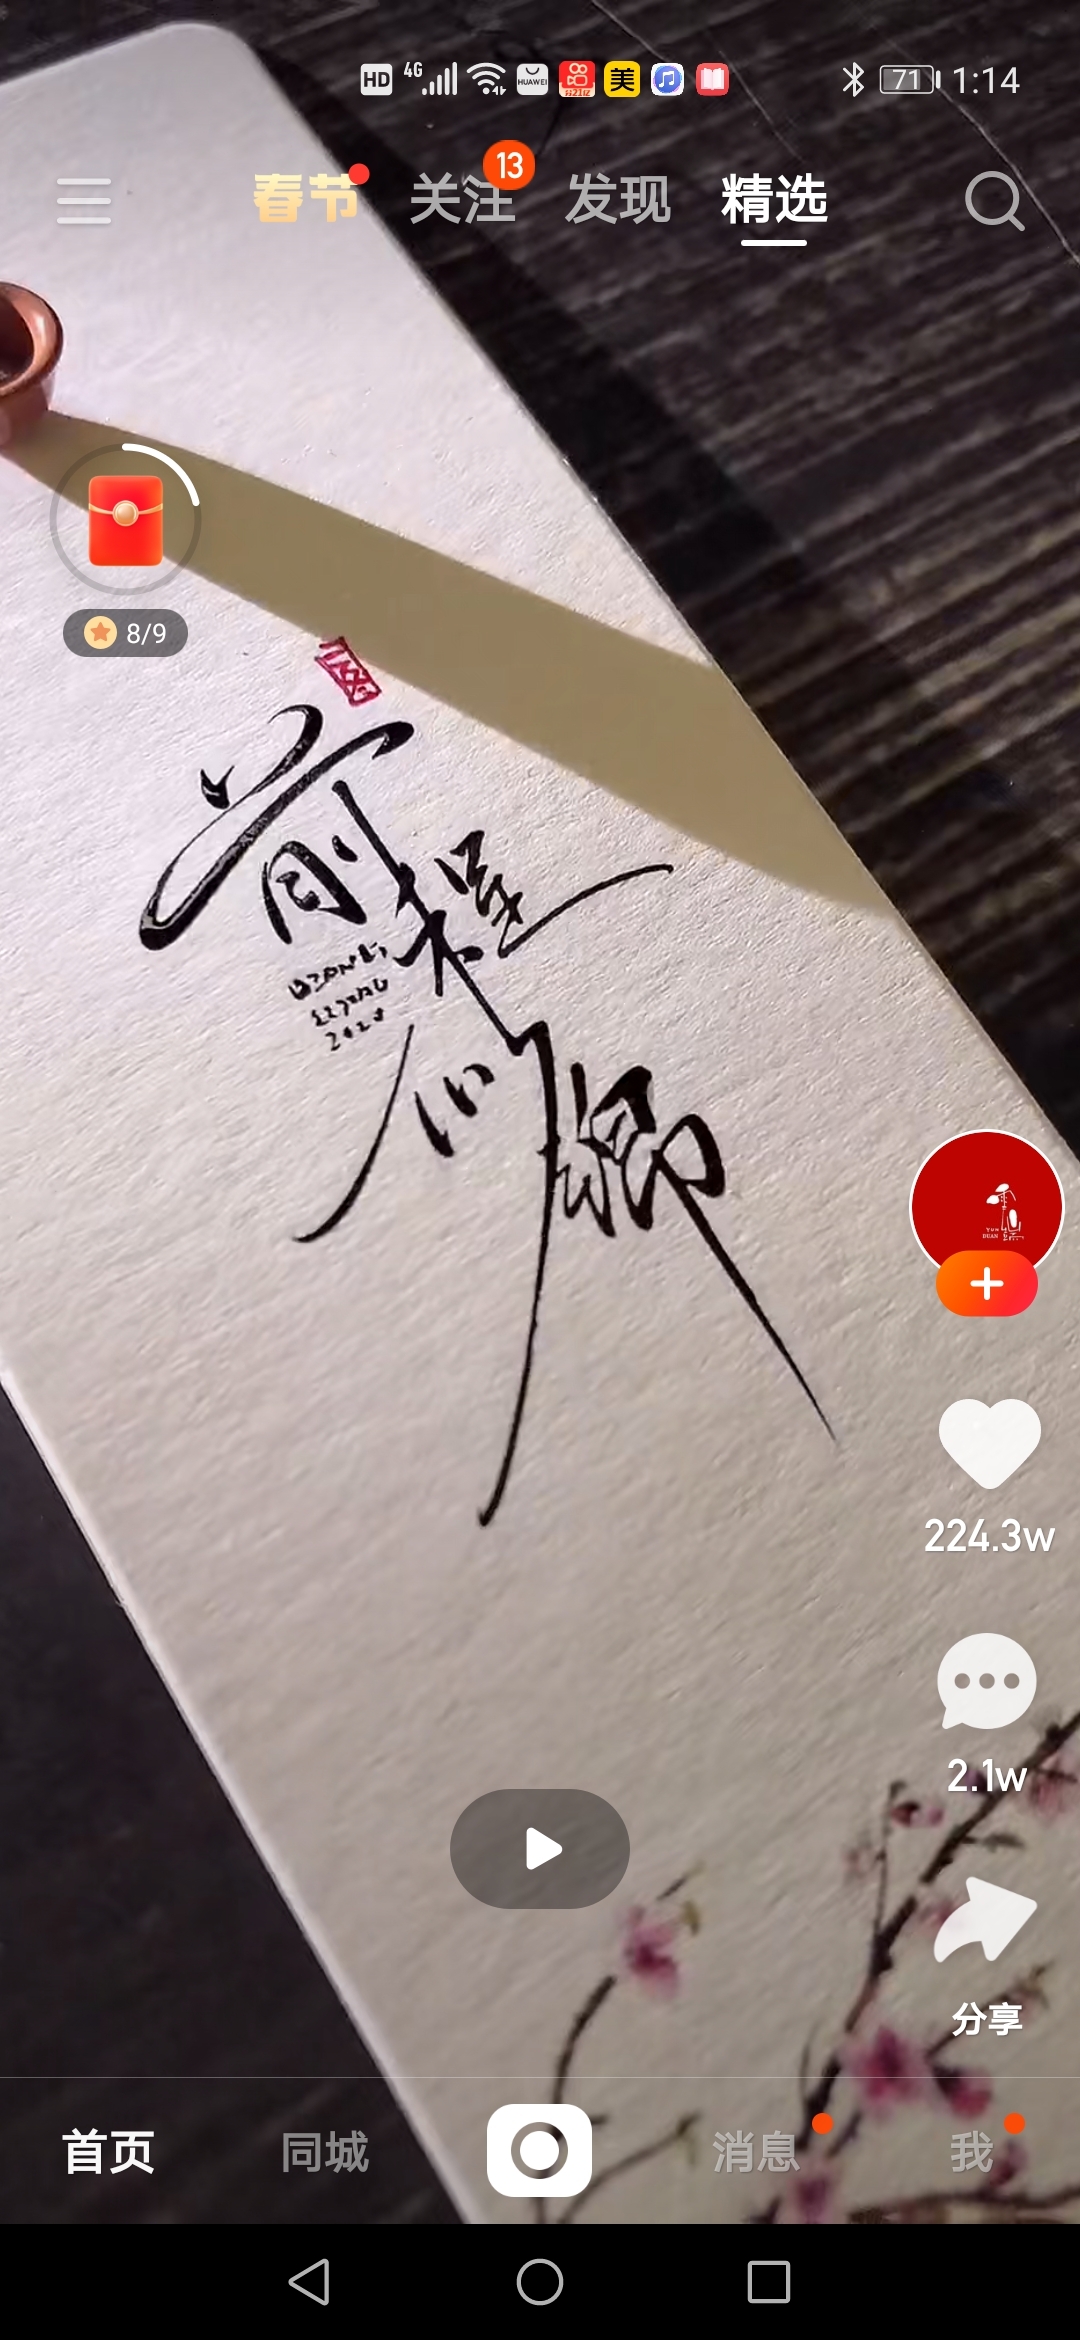 HD 4G HUAWEI 美 71 1:14
春节 关注 13 发现 精选
8/9
前程
似锦
YUN
DUAN
224.3w
2.1w
分享
首页 同城 消息 我